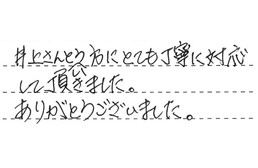 井上さんとう方にとても丁寧に対応
して頂きました。
ありがとうございました。